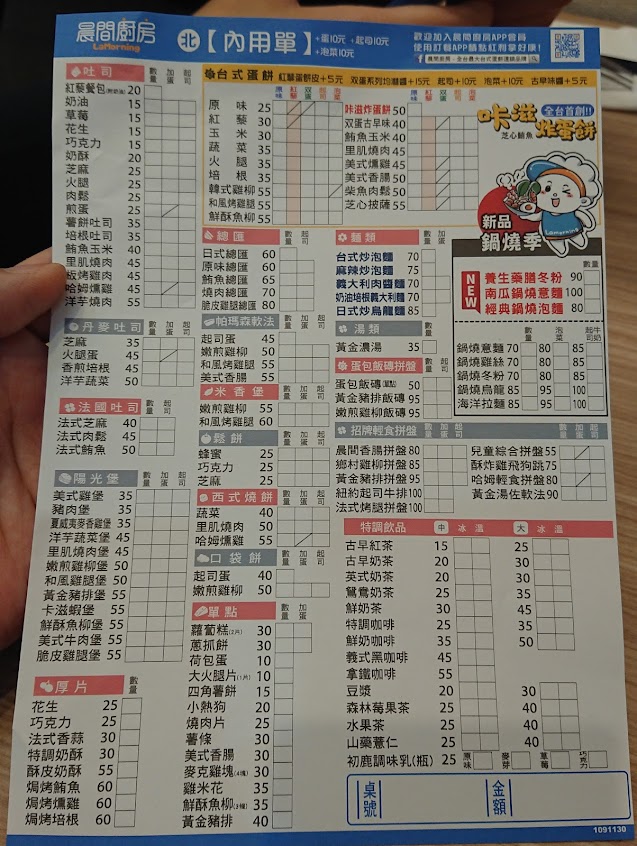 晨間廚房
LaMorning
北【內用單】
+蛋10元 +起司10元
+泡菜10元
歡迎加入晨間廚房APP會員
使用訂餐APP輔點紅利享好康!
晨間廚房-全台最大台式蛋餅連鎖品牌
吐司 數量 加蛋 起司
紅藜餐包 20
奶油 15
草莓 15
花生 15
巧克力 15
奶酥 20
芝麻 25
火腿 25
肉鬆 25
煎蛋 25
薯餅吐司 35
培根吐司 35
鮪魚玉米 40
里肌燒肉 45
板烤雞肉 45
哈姆燻雞 45
洋芋燒肉 55
丹麥吐司 數量 加蛋 起司
芝麻 35
火腿蛋 45
香煎培根 45
洋芋蔬菜 50
法國吐司 數量 加蛋 起司
法式芝麻 40
法式肉鬆 45
法式鮪魚 50
陽光堡 數量 加蛋 起司
美式雞堡 35
豬肉堡 35
夏威夷麥香雞堡 35
洋芋蔬菜堡 45
里肌燒肉堡 45
嫩煎雞柳堡 50
和風雞腿堡 50
黃金豬排堡 55
卡滋蝦堡 55
鮮酥魚柳堡 55
美式牛肉堡 55
脆皮雞腿堡 55
厚片 數量
花生 25
巧克力 25
法式香蒜 30
特調奶酥 30
酥皮奶酥 55
焗烤鮪魚 60
焗烤燻雞 60
焗烤培根 60
台式蛋餅 紅藜蛋餅皮+5元 雙蛋系列均附醬+15元 起司+10元 泡菜+10元 古早味醬+5元
原味 紅藜 雙蛋 起司 泡菜
原味 25
紅藜 30
玉米 30
蔬菜 35
火腿 35
培根 35
韓式雞柳 55
和風烤雞腿 55
鮮酥魚柳 55
原味 紅藜 雙蛋 起司 泡菜
咔滋炸蛋餅 50
双蛋古早味 40
鮪魚玉米 40
里肌燒肉 45
美式燻雞 45
美式香腸 50
柴魚肉鬆 50
芝心披薩 55
全台首創!!
咔滋炸蛋餅
芝心鮪魚
Lamorning
新品
鍋燒季
總匯 數量 起司
日式總匯 60
原味總匯 60
鮪魚總匯 65
燒肉總匯 70
脆皮雞腿總匯 80
帕瑪森軟法 數量 加蛋 起司
起司蛋 45
嫩煎雞柳 50
和風雞腿 55
美式香腸 55
米香堡 數量 加蛋 起司
嫩煎雞柳 55
和風烤雞腿 60
鬆餅 數量
蜂蜜 25
巧克力 25
芝麻 25
西式燒餅 數量 加蛋 起司
蔬菜 40
里肌燒肉 50
哈姆燻雞 55
口袋餅 數量 加蛋 起司
起司蛋 40
嫩煎雞柳 50
單點 數量 加蛋
蘿蔔糕(2片) 30
蔥抓餅 30
荷包蛋 10
大火腿片(1片) 10
四角薯餅 15
小熱狗 20
燒肉片 25
薯條 30
美式香腸 30
麥克雞塊(4塊) 30
雞米花 35
鮮酥魚柳(3條) 35
黃金豬排 40
麵類 數量 加蛋 起司
台式炒泡麵 70
麻辣炒泡麵 75
義大利肉醬麵 70
奶油培根義大利麵 70
日式炒烏龍麵 85
湯類 數量
黃金濃湯 35
蛋包飯磚拼盤
蛋包飯磚(單點) 50
黃金豬排飯磚 95
嫩煎雞柳飯磚 95
NEW 數量
養生藥膳冬粉 90
南瓜鍋燒意麵 100
經典鍋燒泡麵 80
數量 泡菜 起司牛奶
鍋燒意麵 70 80 85
鍋燒雞絲 70 80 85
鍋燒冬粉 70 80 85
鍋燒烏龍 85 95 100
海洋拉麵 85 95 100
招牌輕食拼盤 數量 加蛋 起司
晨間香腸拼盤 80
鄉村雞柳拼盤 85
黃金豬排拼盤 95
紐約起司牛排 100
法式烤腿拼盤 100
兒童綜合拼盤 55
酥炸雞飛狗跳 75
哈姆輕食拼盤 80
黃金湯佐軟法 90
特調飲品 中 冰 溫 大 冰 溫
古早紅茶 15 25
古早奶茶 20 30
英式奶茶 20 30
鴛鴦奶茶 25 35
鮮奶茶 30 45
特調咖啡 25 35
鮮奶咖啡 35 50
義式黑咖啡 45
拿鐵咖啡 55
豆漿 20 30
森林莓果茶 25 40
水果茶 25 40
山藥薏仁 25 40
初鹿調味乳(瓶) 25 原味 麥芽 草莓 巧克力
桌號
金額
1091130